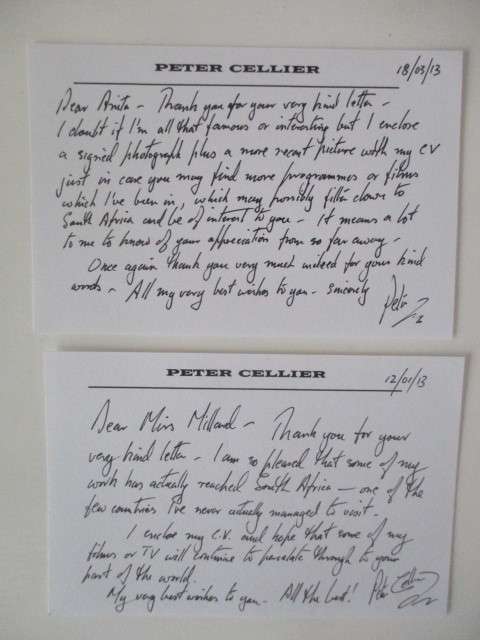 PETER CELLIER
18/03/13
Dear Anita - Thank you for your very kind letter -
I doubt if I'm all that famous or interesting but I enclose
a signed photograph plus a more recent picture with my CV
just in case you may find more programmes or films
which I've been in, which may possibly filter down to
South Africa and be of interest to you - It means a lot
to me to know of your appreciation from so far away -
Once again thank you very much indeed for your kind
words - All my very best wishes to you - Sincerely
Peter
PETER CELLIER
12/01/13
Dear Miss Millard - Thank you for your
very kind letter - I am so pleased that some of my
work has actually reached South Africa - one of the
few countries I've never actually managed to visit.
I enclose my C.V. and hope that some of my
films or TV will continue to percolate through to your
part of the world.
My very best wishes to you - All the best! Peter Cellier